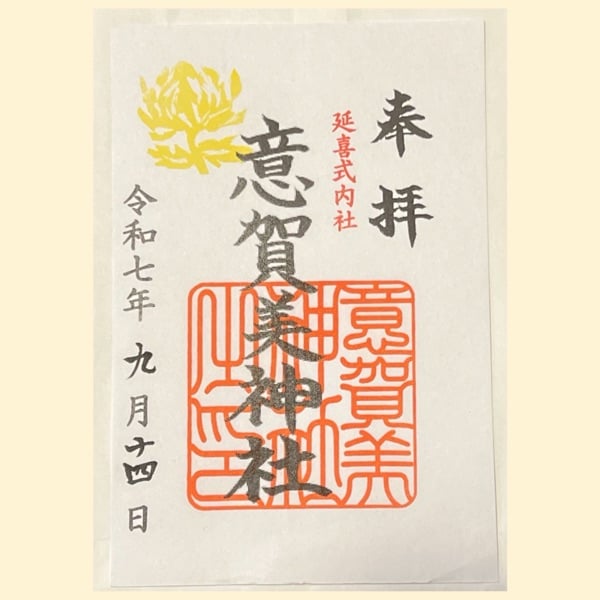 奉拝
延喜式内社
意賀美神社
意賀美神社之印
令和七年九月十四日